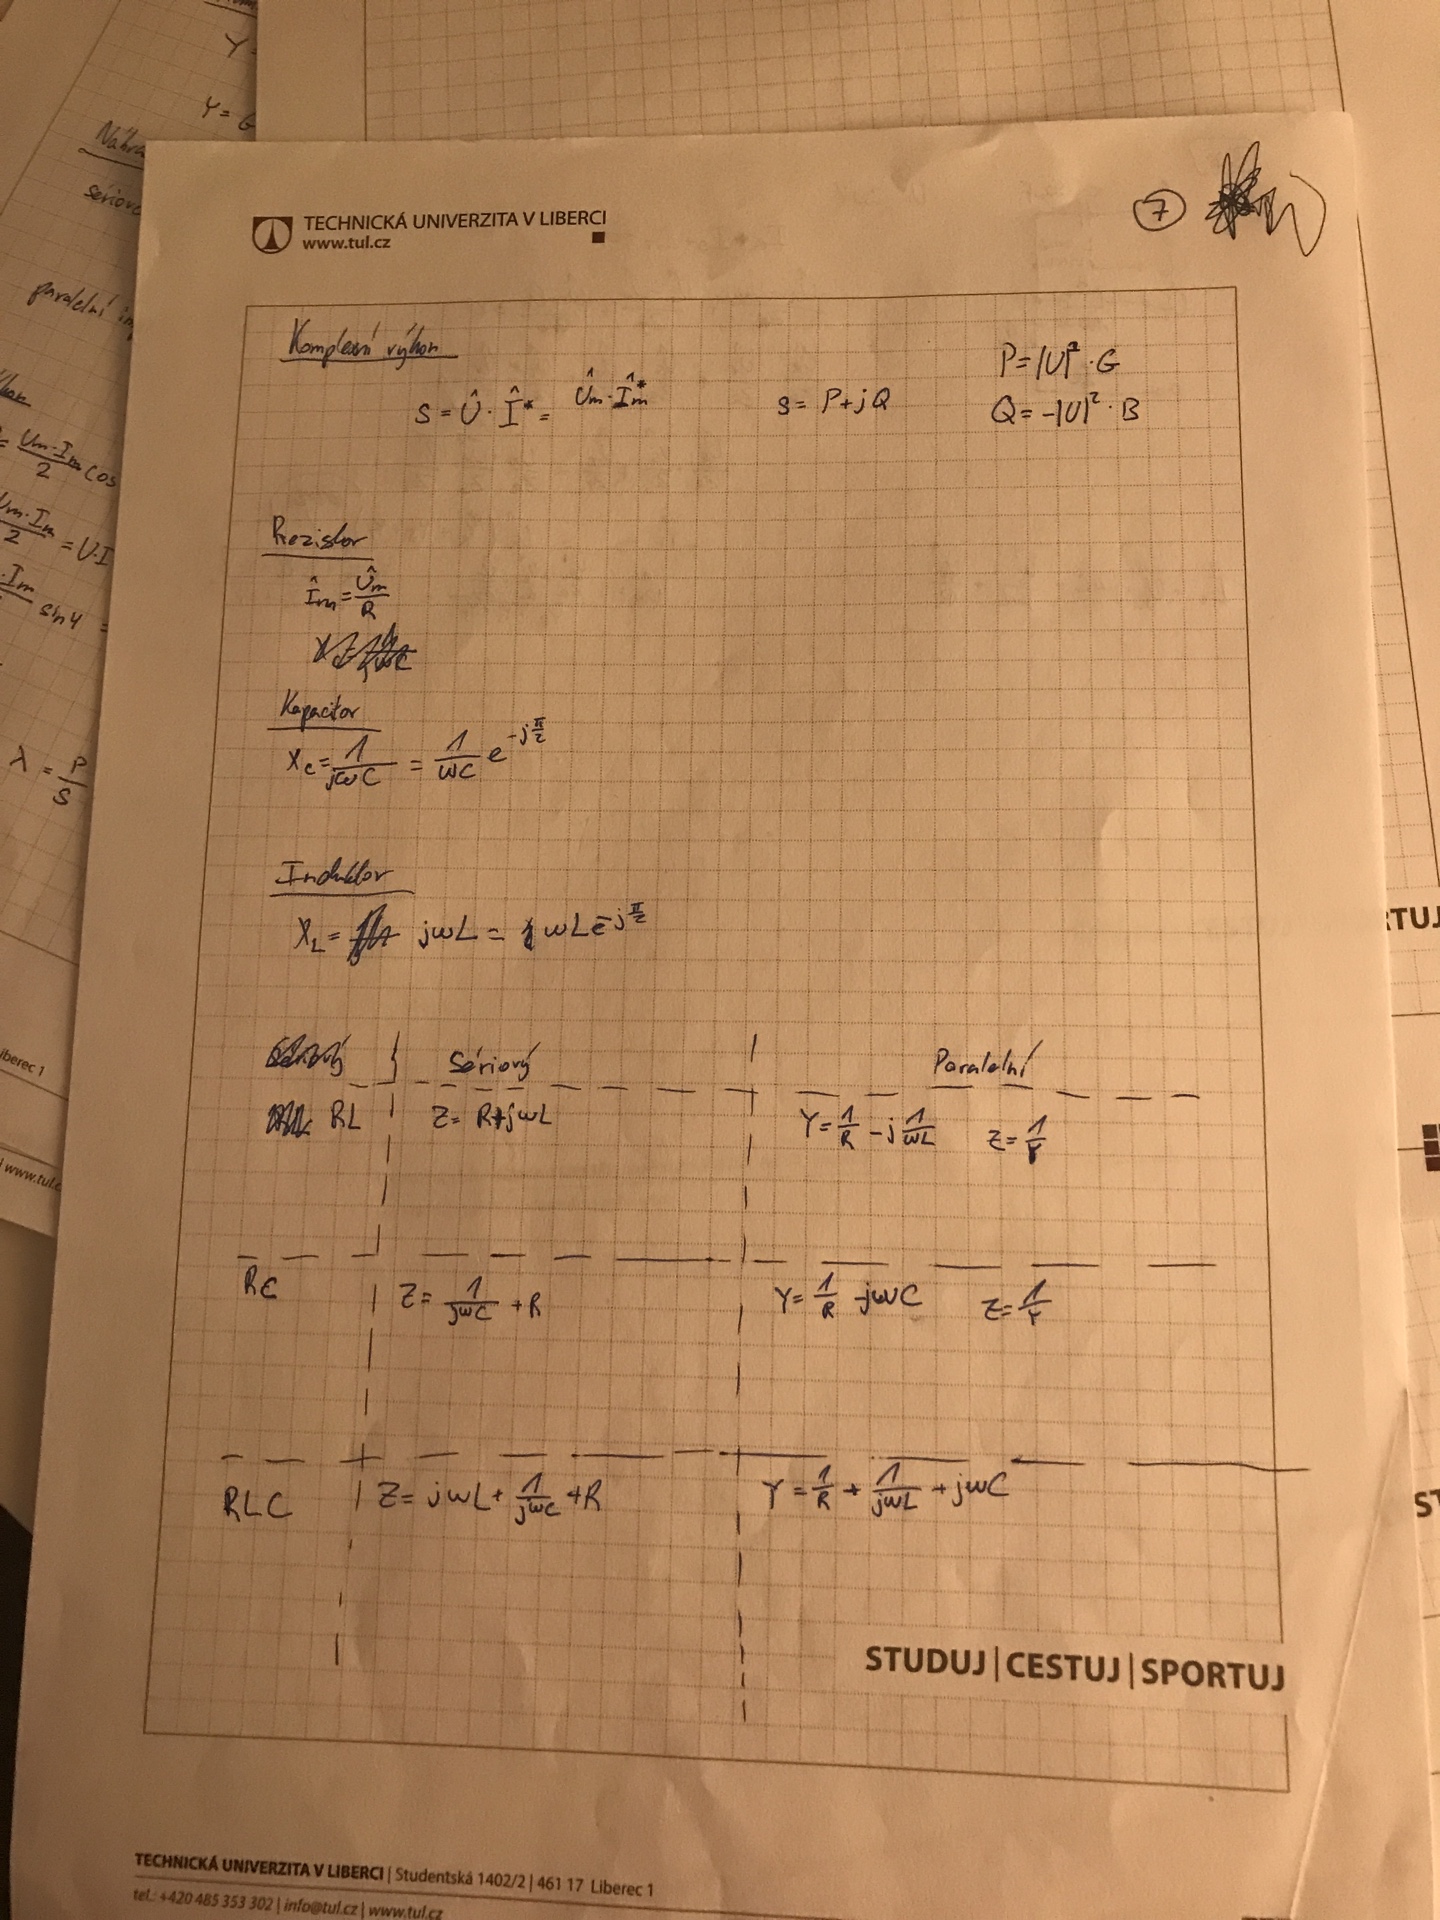 Y=
Y = G
sériov
paralelní
= Um·Im/2 cos
Um·Im/2 = U·I
·Im sinφ =
λ = P/S
iberec 1
www.tul.c
TECHNICKÁ UNIVERZITA V LIBERCI
www.tul.cz
7
Komplexní výkon
S = Û · Î* = Ûm · Îm*
S = P+jQ
P = |U|² · G
Q = -|U|² · B
Rezistor
Îm = Ûm/R
Kapacitor
Xc = 1/jωC = 1/ωC e^-jπ/2
Induktor
XL = jωL = ωL e^-jπ/2
Sériový Paralelní
RL Z = R+jωL Y = 1/R - j 1/ωL Z = 1/Y
RC Z = 1/jωC + R Y = 1/R - jωC Z = 1/Y
RLC Z = jωL + 1/jωC + R Y = 1/R + 1/jωL + jωC
STUDUJ | CESTUJ | SPORTUJ
TECHNICKÁ UNIVERZITA V LIBERCI | Studentská 1402/2 | 461 17 Liberec 1
tel.: +420 485 353 302 | info@tul.cz | www.tul.cz
RTUJ
ST